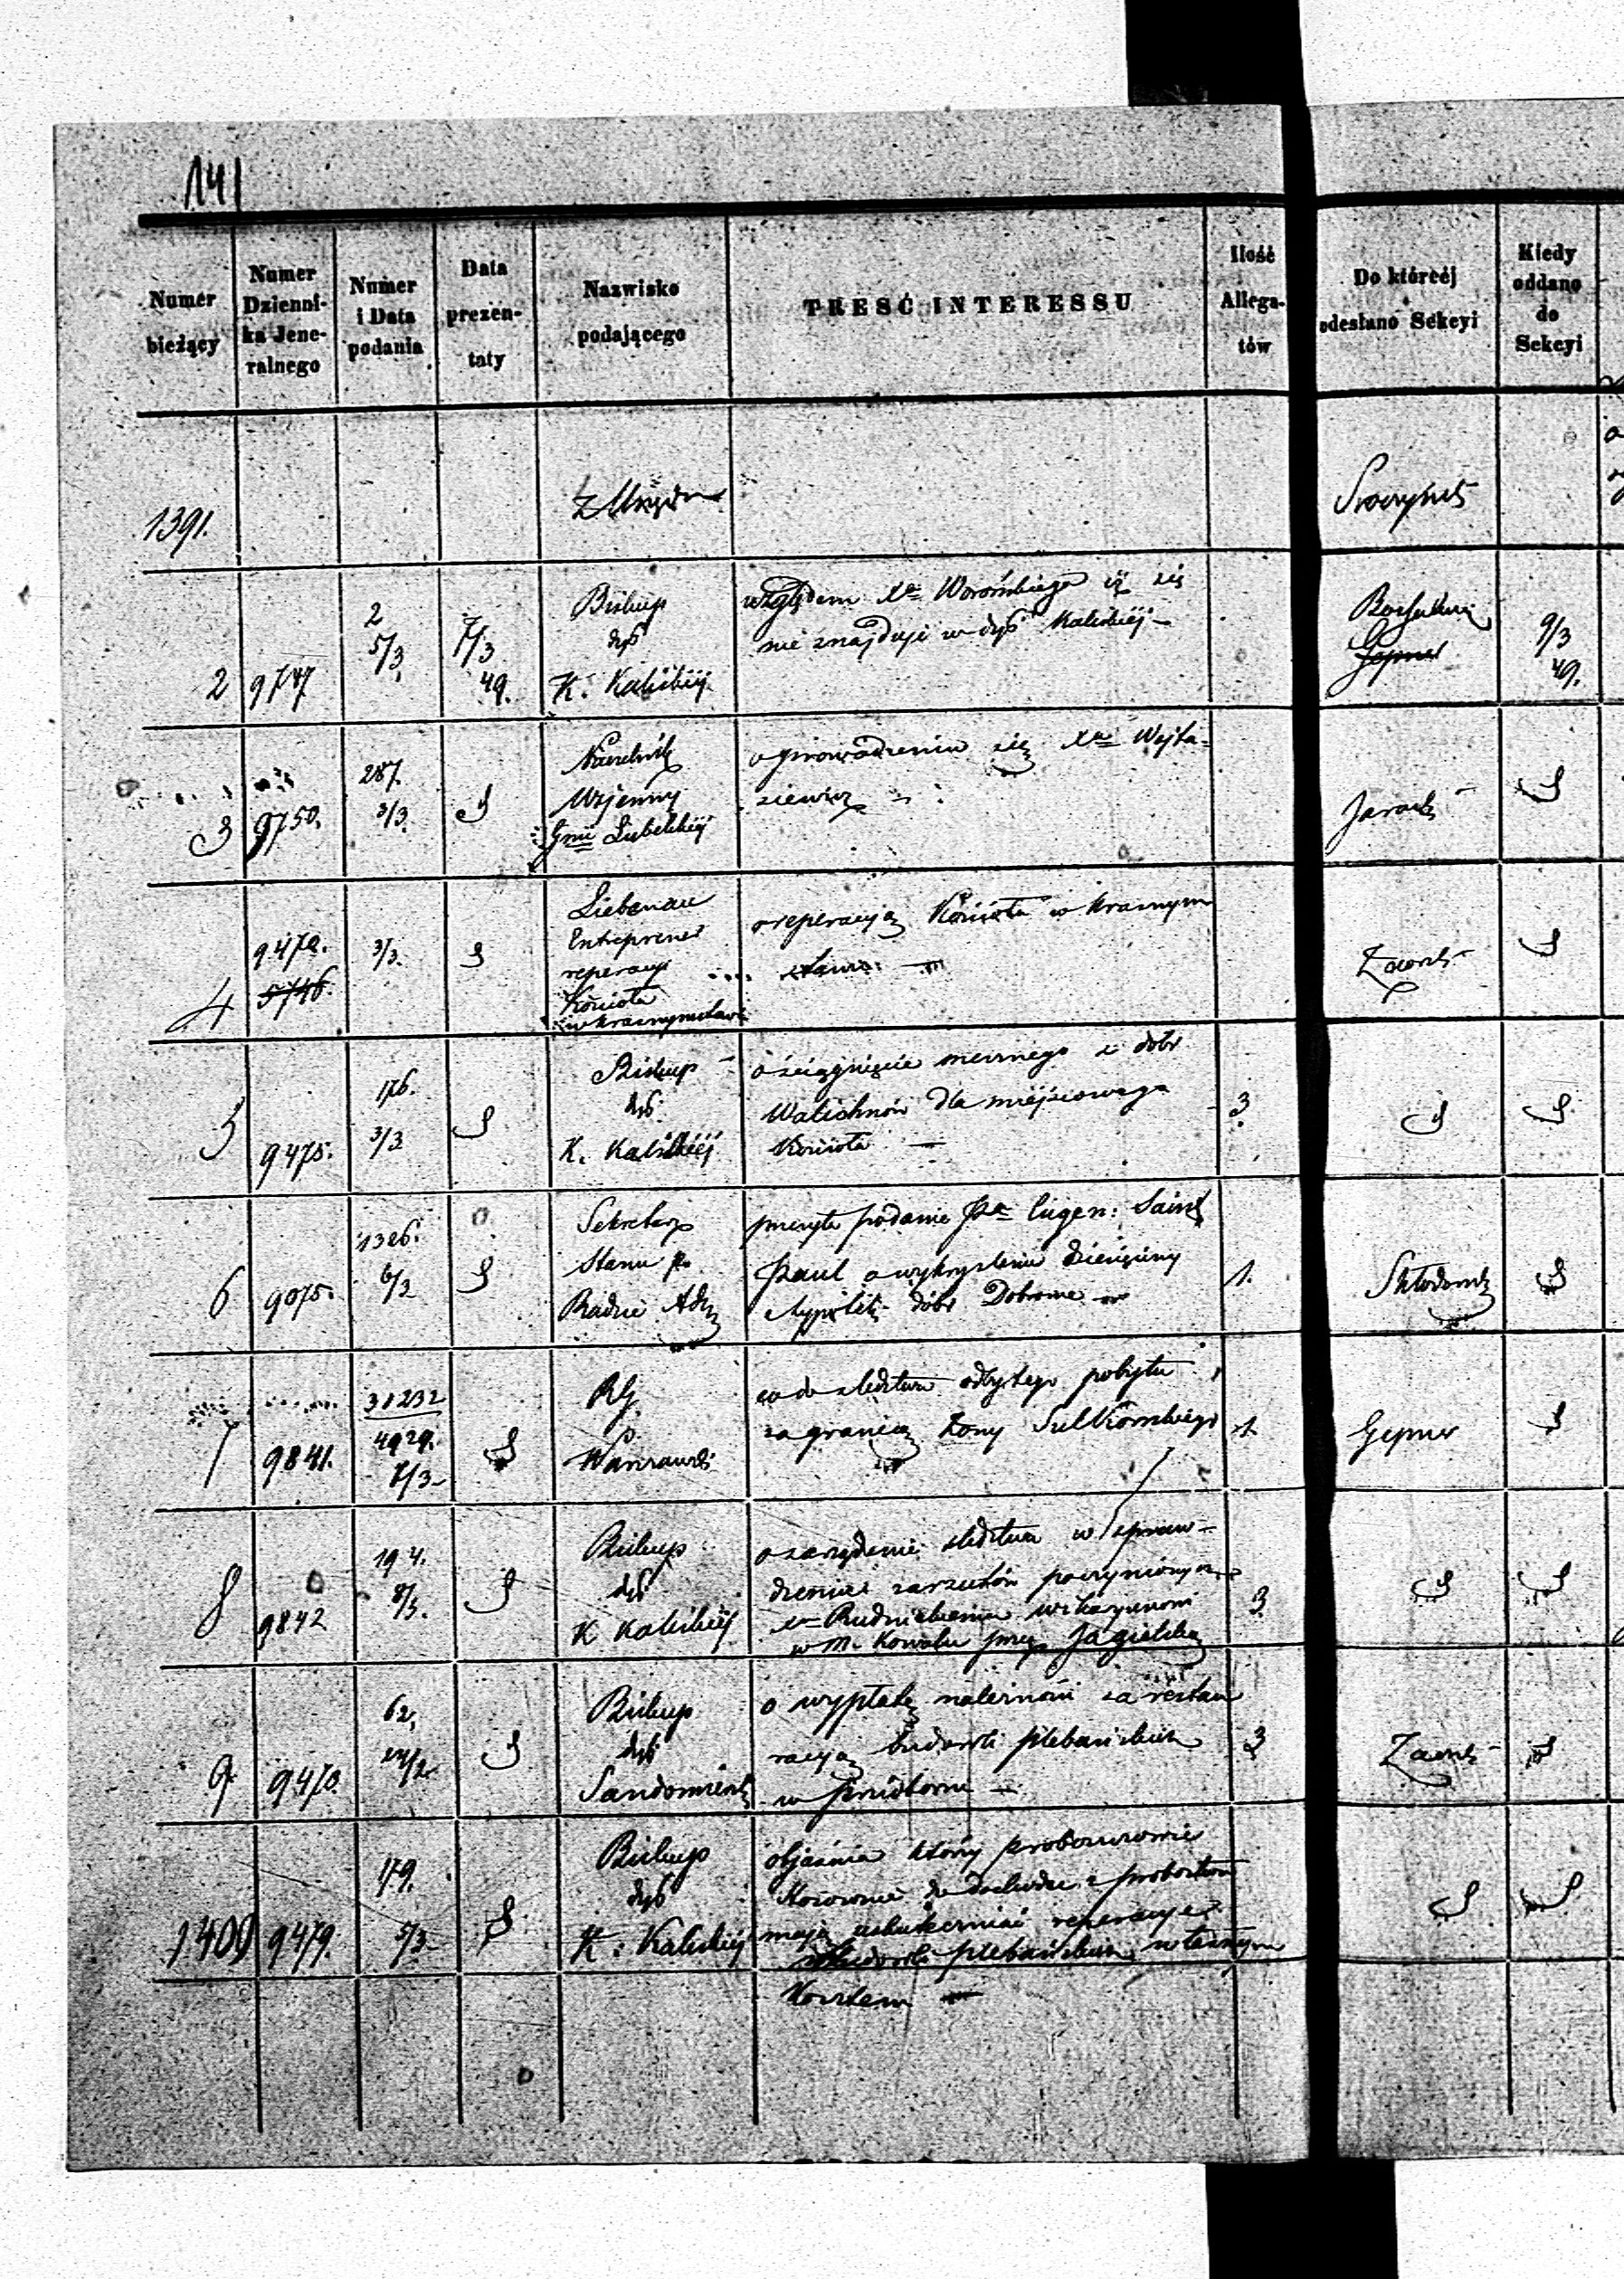 141
Numer bieżący
Numer Dzienni-ka Jene-ralnego
Numer i Data podania
Data prezen-taty
Nazwisko podającego
TREŚĆ INTERESSU
Ilość Allega-tów
Do któreéj odesłano Sekcyi
Kiedy oddano do Sekcyi
1391.
z Urzędu
2 9747
2 5/3
7/3 49.
Biskup
dys
K. Kaliskiéj
względem Xa Worońskiego iż się
nie znajduje w dys Kaliskiéj —
9/3 49.
3 9750.
287. 3/3.
Naczelnik
Wojenny
Gnii Lubelskiéj
o prowadzeniu się Xa Wojta-
siewicz
4 9472. 5746.
3/3.
Liebenau
Entreprener
reperacyi
Kościoła
w Krasnymstawie
o reperacyą Kościoła w Krasnym
stawie —
5 9475.
176. 3/3
Biskup
dys
K. Kaliskiéj
o ściągnięcie mesznego z dóbr
Walichnów dla miejscowego
Kościoła —
3.
6 9075.
1326. 6/3
Sekretarz
Stanu p.
Radzie Adm
przesyła podanie Pa Eugen: Saint
Paul o wykreślenie dziesięciny
z hypoteki dóbr
1.
7 9841.
31232
4929. 7/3
RG.
Warszawski
co do śledztwa odbytego pobytu
za granicą żony Sulkowskiego
1.
Gepner
8 9842
194. 8/3.
Biskup
dys
K Kaliskiéj
o zarządzenie śledztwa w spraw-
dzeniu zarzutów poczynionych
w M. Kowalu przez Jagielską
3.
9 9470.
62.
Biskup
dys
Sandomierski
o wypłatę należności za restau
racyą budowli plebańskich
w
3
1400 9479.
179. 5/3
Biskup
dys
K: Kaliskiéj
objaśnia którzy proboszczowie
mają uskuteczniać reperacye
budowli plebańskich własnym
Kosztem —